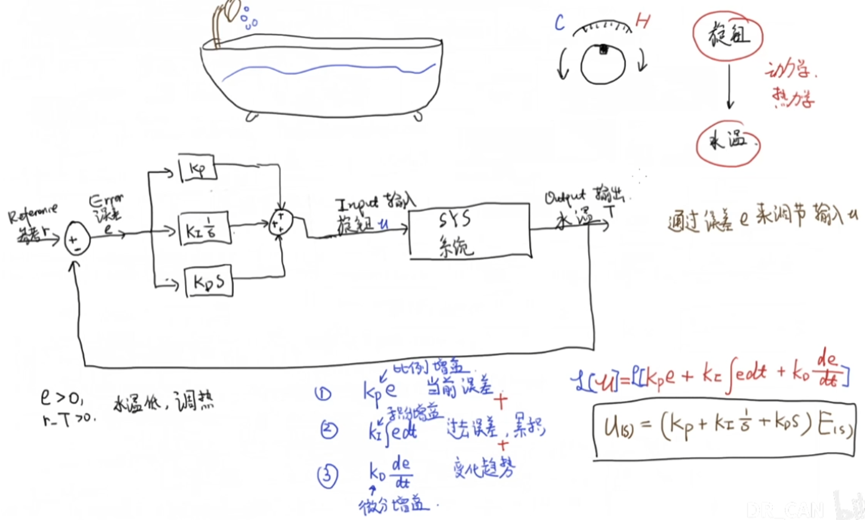 C H
旋钮
动力学.
热力学
水温
Reference
参考 r
Error
误差
e
+
-
Kp
KI 1/S
KDS
+
+
+
Input 输入
旋钮 u
SYS
系统
Output 输出
水温 T
通过误差 e 来调节 输入 u
e>0,
r-T>0. 水温低,调热
比例增益
① Kp e 当前误差
+
积分增益
② KI∫edt 过去误差,累积
+
③ KD de/dt 变化趋势
微分增益
L[u]=L[Kp e + KI∫edt + KD de/dt]
U(s) = (Kp + KI 1/S + KDS) E(s)